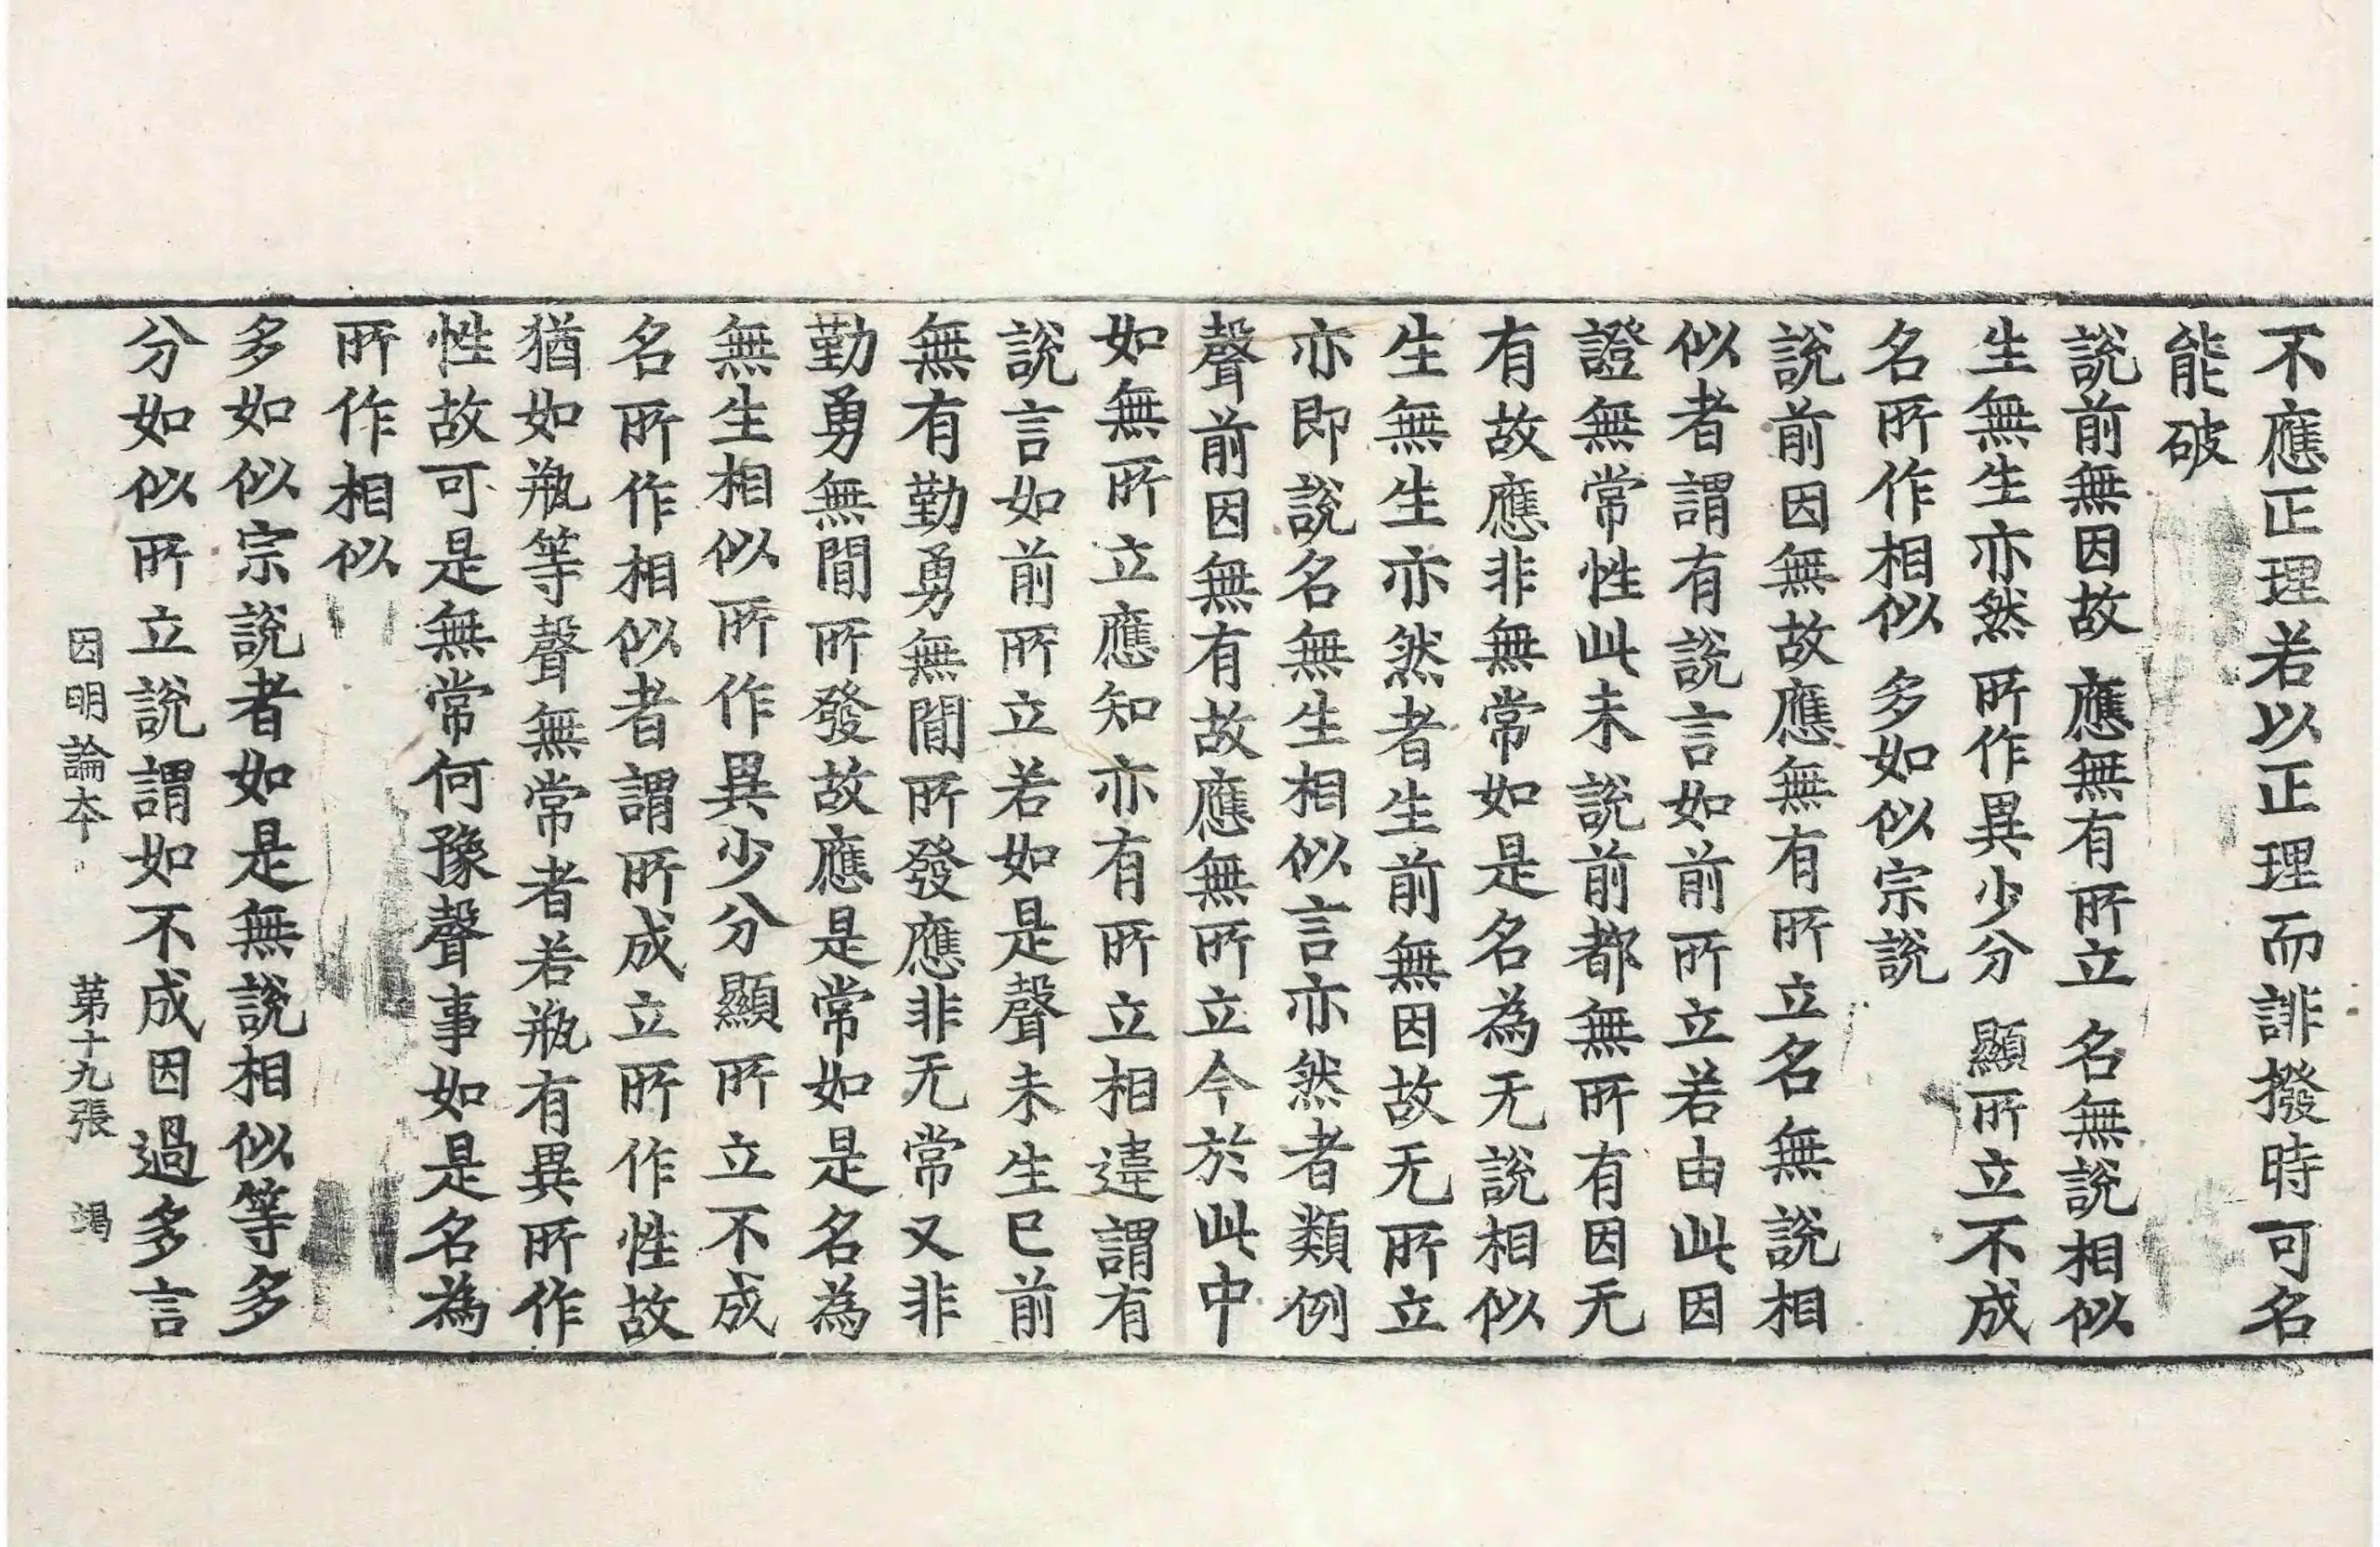 不應正理若以正理而誹撥時可名
能破
說前無因故 應無有所立 名無說相似
生無生亦然 所作異少分 顯所立不成
名所作相似 多如似宗說
說前因無故應無有所立名無說相
似者謂有說言如前所立若由此因
證無常性此未說前都無所有因无
有故應非無常如是名為无說相似
生無生亦然者生前無因故无所立
亦即說名無生相似言亦然者類例
聲前因無有故應無所立今於此中
如無所立應知亦有所立相違謂有
說言如前所立若如是聲未生已前
無有勤勇無間所發應非无常又非
勤勇無間所發故應是常如是名為
無生相似所作異少分顯所立不成
名所作相似者謂所成立所作性故
猶如瓶等聲無常者若瓶有異所作
性故可是無常何豫聲事如是名為
所作相似
多如似宗說者如是無說相似等多
分如似所立說謂如不成因過多言
因明論本 第十九張 竭